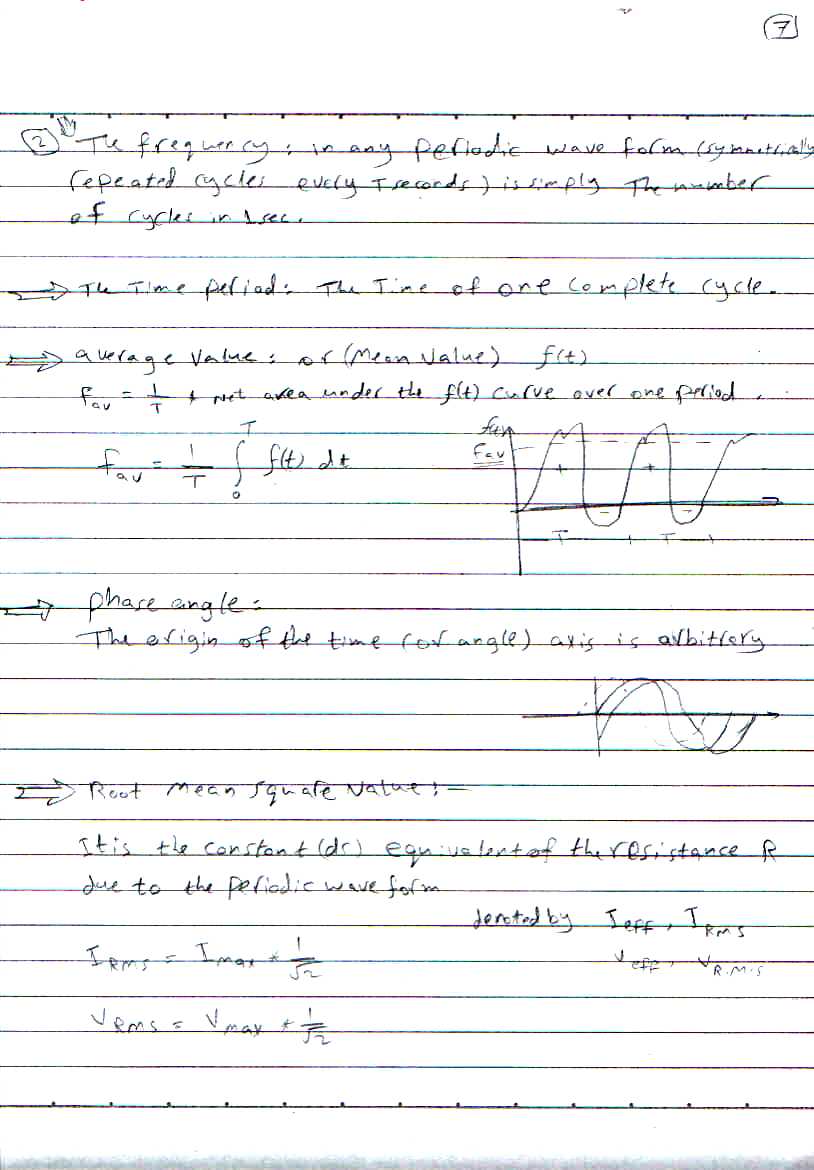 7
2 The frequency : in any periodic wave form (symmetrically
repeated cycles every T seconds) is simply The number
of cycles in 1 sec.
⇒ The Time period : The Time of one complete cycle.
⇒ average Value : or (Mean Value) f(t)
Fav = 1/T * Net area under the f(t) curve over one period.
fav = 1/T ∫₀ᵀ f(t) dt
Fav
+ +
- -
T T
⇒ phase angle :
The origin of the time (or angle) axis is arbitrary
⇒ Root mean square value :-
It is the constant (dc) equivalent of the resistance R
due to the periodic wave form
denoted by Ieff, IRMS
IRMS = Imax * 1/√2
Veff, VR.M.S
VRMS = Vmax * 1/√2